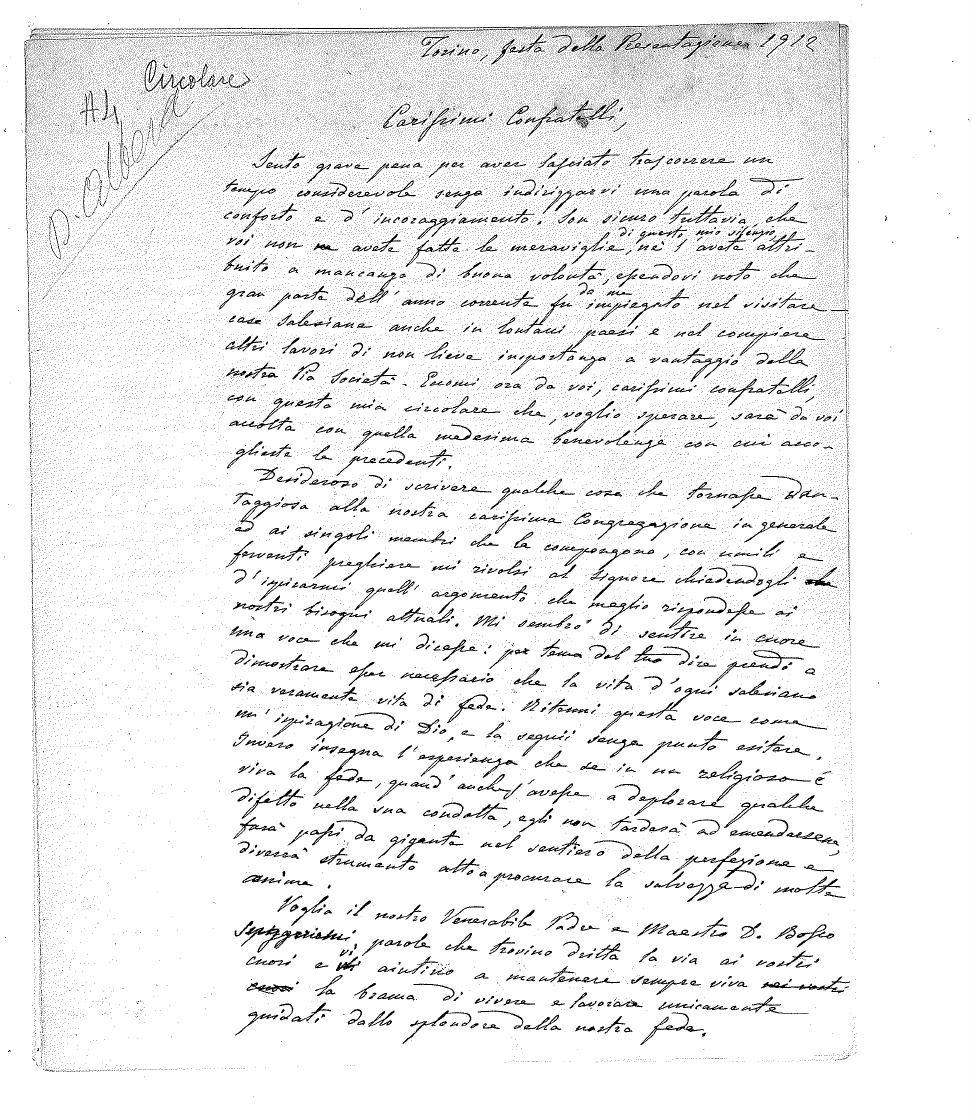 Torino, festa della Presentazione 1912
Circolare
A4
D. Albera
Carissimi Confratelli,
Sento grave pena per aver lasciato trascorrere un
tempo considerevole senza indirizzarvi una parola di
conforto e d'incoraggiamento. Son sicuro tuttavia, che
di questo mio silenzio,
voi non ne avete fatte le meraviglie, nè l'avete attri-
buito a mancanza di buona volontà, essendovi noto che
da me
gran parte dell'anno corrente fu impiegato nel visitare
case Salesiane anche in lontani paesi e nel compiere
altri lavori di non lieve importanza a vantaggio della
nostra Pia Società. Eccomi ora da voi, carissimi confratelli,
con questa mia circolare che, voglio sperare, sarà da voi
accolta con quella medesima benevolenza con cui acco-
glieste le precedenti.
Desideroso di scrivere qualche cosa che tornasse van-
taggiosa alla nostra carissima Congregazione in generale
ed ai singoli membri che la compongono, con umili e
ferventi preghiere mi rivolsi al Signore chiedendogli che
d'ispirarmi quell'argomento che meglio rispondesse ai
nostri bisogni attuali. Mi sembrò di sentire in cuore
una voce che mi dicesse: per tema del tuo dire prendi a
dimostrare esser necessario che la vita d'ogni salesiano
sia veramente vita di fede. Ritenni questa voce come
un'ispirazione di Dio, e la seguii senza punto esitare.
Invero insegna l'esperienza che se in un religioso è
viva la fede, quand'anche s'avesse a deplorare qualche
difetto nella sua condotta, egli non tarderà ad emendarsene,
farà passi da gigante nel sentiero della perfezione e
diverrà strumento atto a procurare la salvezza di molte
anime.
Voglia il nostro Venerabile Padre e Maestro D. Bosco
parole che trovino dritta la via ai vostri
vi
cuori e aiutino a mantenere sempre viva nei vostri
cuori la brama di vivere e lavorare unicamente
guidati dallo splendore della nostra fede.